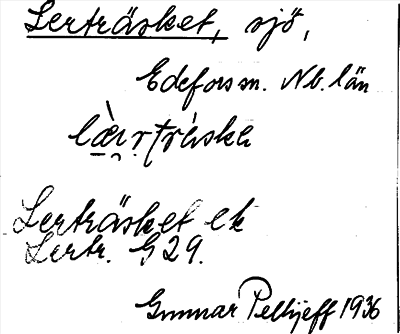 Lerträsket, sjö,
Edefors sn. Nb. län
læ̀rtrȧska
Lerträsket ek
Lertr. G 29.
Gunnar Pellijeff 1936